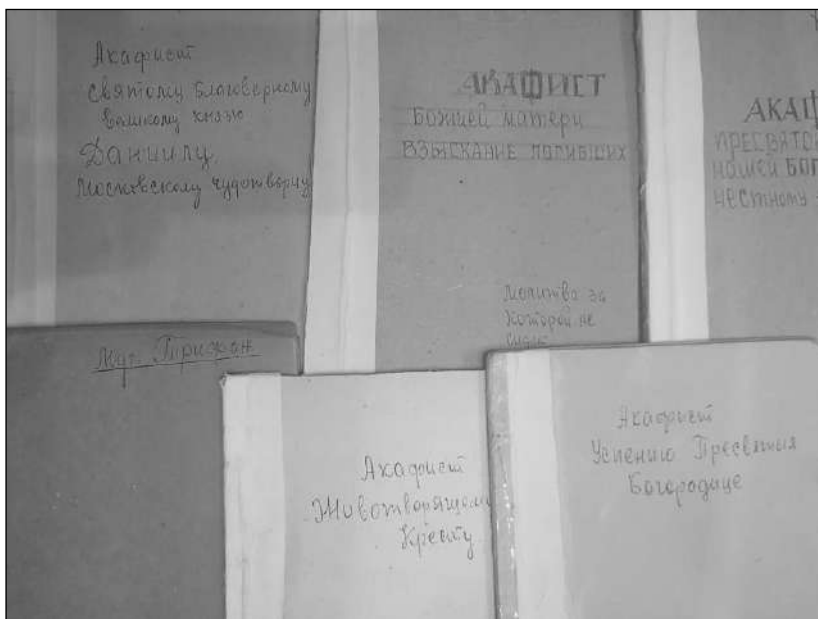 Акафист
святому благоверному
великому князю
Даниилу,
Московскому чудотворцу
АКАФИСТ
БОЖИЕЙ МАТЕРИ
ВЗЫСКАНИЕ ПОГИБШИХ
Молитва за
которой не
АКАФ
ПРЕСВЯТО
НАШЕЙ БОГ
ЧЕСТНОМУ
Муч. Трифон
Акафист
Животворящему
Кресту
Акафист
Успению Пресвятыя
Богородице